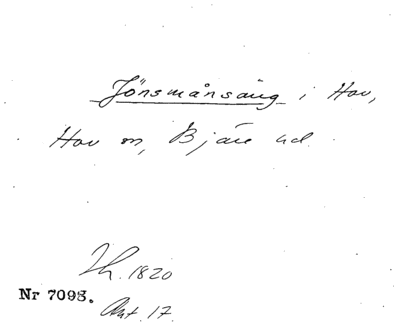 Jönsmånsäng i Hov,
Hov sn, Bjäre hd.
Lh. 1820
Nr 7098.
Akt 17